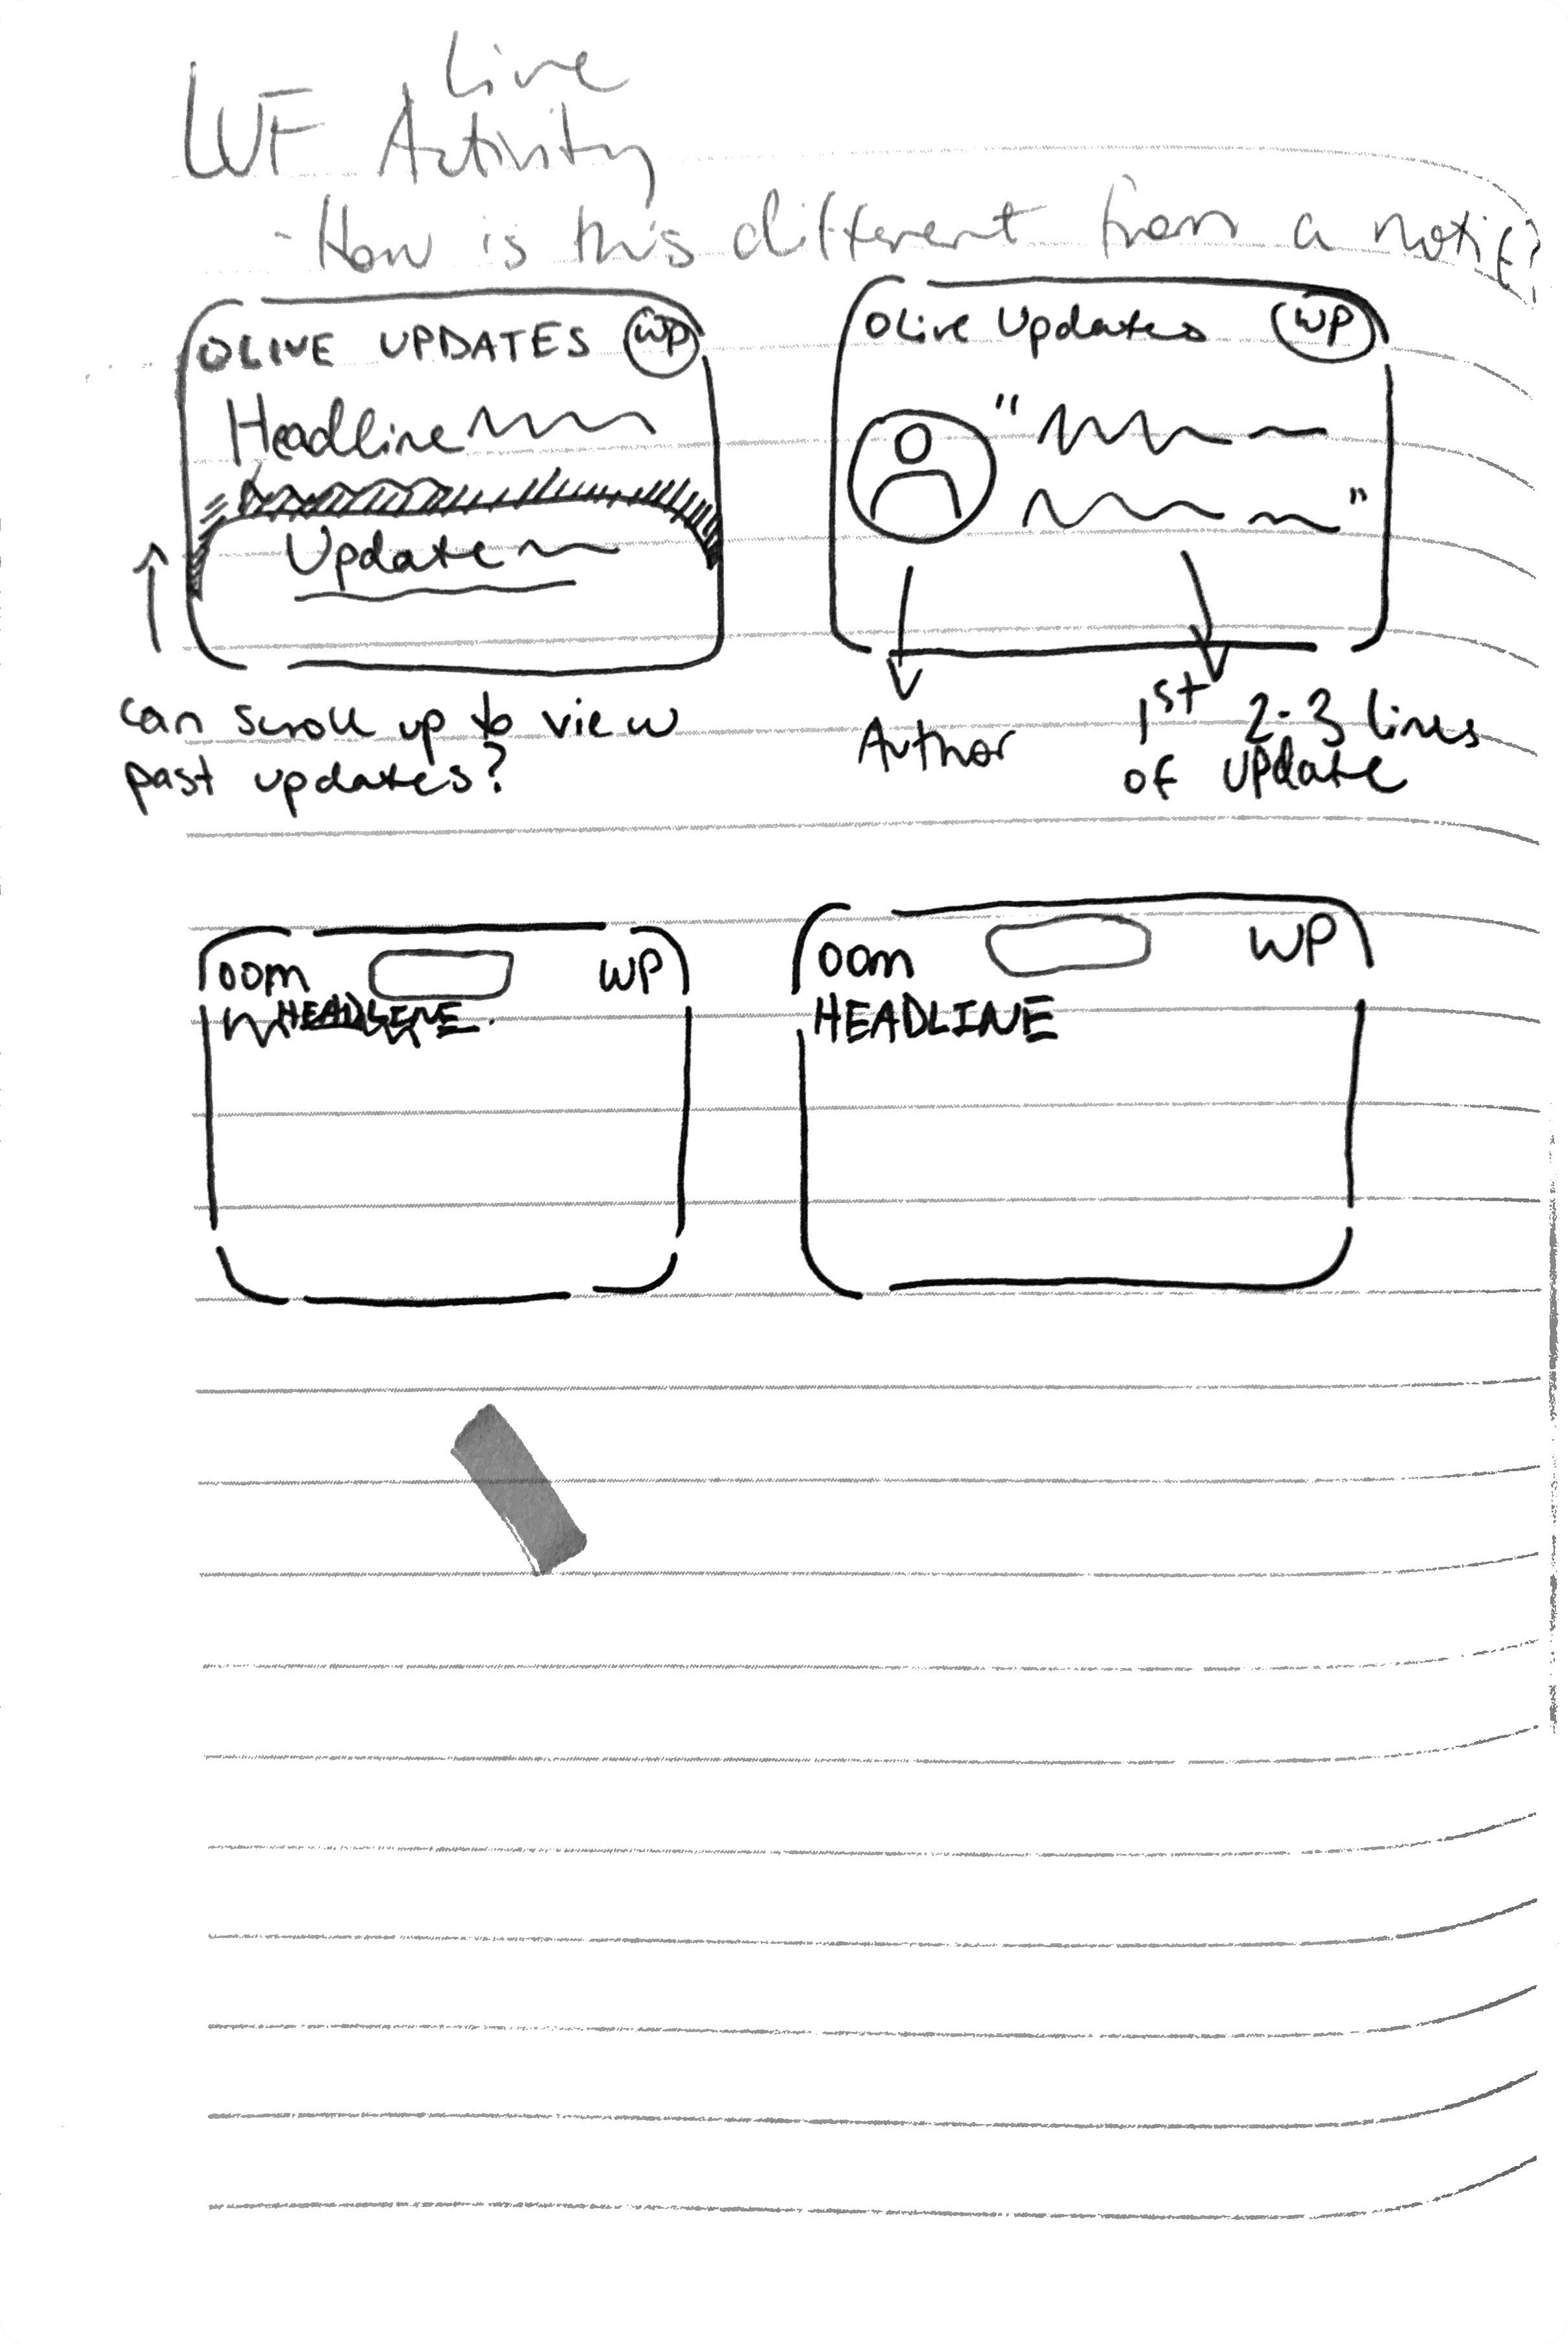 Live
LUF Activity
- How is this different from a notif?
O LIVE UPDATES WP
Headline
Update
can scroll up to view
past updates?
O Live Updates WP
" "
Author
1st 2-3 lines
of update
00m WP
HEADLINE
00m WP
HEADLINE